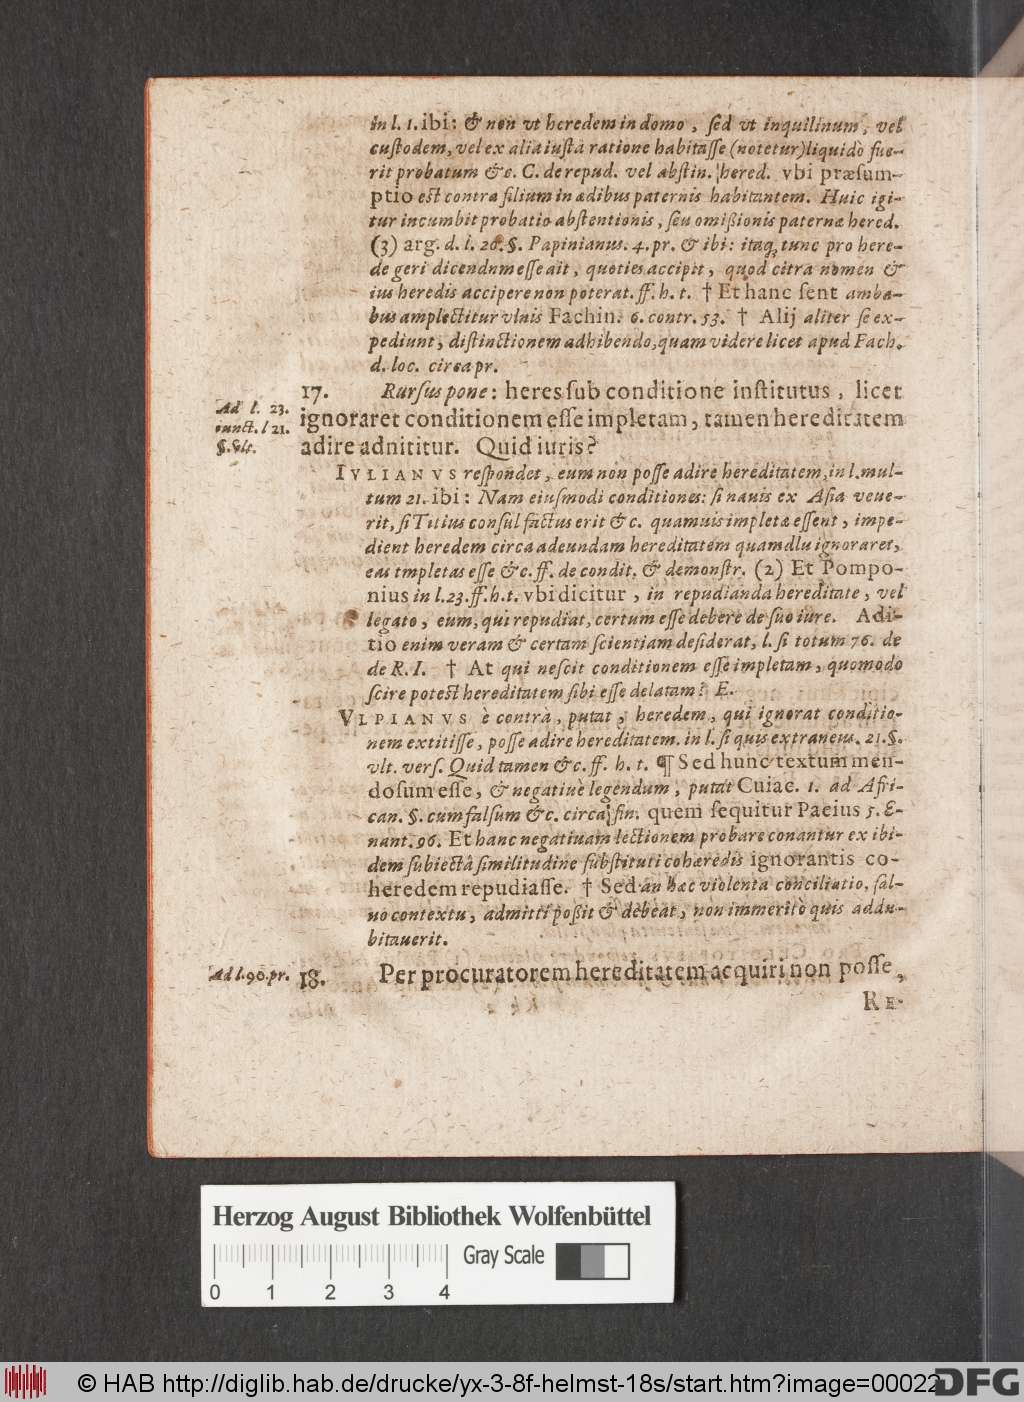 in l. 1. ibi: & non vt heredem in domo, sed vt inquilinum, vel
custodem, vel ex alia iusta ratione habitasse (notetur) liquidò fue-
rit probatum &c. C. de repud. vel abstin. hered. vbi præsum-
ptio est contra filium in ædibus paternis habitantem. Huic igi-
tur incumbit probatio abstentionis, seu omißionis paternæ hered.
(3) arg. d. l. 20. §. Papinianus. 4. pr. & ibi: itaq; tunc pro here-
de geri dicendum esse ait, quoties accipit, quod citra nomen &
ius heredis accipere non poterat. ff. h. t. † Et hanc sent amba-
bus amplectitur vlnis Fachin. 6. contr. 53. † Alij aliter se ex-
pediunt, distinctionem adhibendo, quam videre licet apud Fach.
d. loc. circa pr.
17. Rursus pone: heres sub conditione institutus, licet
Ad l. 23.
iunct. l 21.
§. vlt.
ignoraret conditionem esse impletam, tamen hereditatem
adire adnititur. Quid iuris?
IVLIANVS respondet, eum non posse adire hereditatem, in l. mul-
tum 21. ibi: Nam eiusmodi conditiones: si nauis ex Asia vene-
rit, si Titius consul factus erit &c. quamuis impletæ essent, impe-
dient heredem circa adeundam hereditatem quamdiu ignoraret,
eas impletas esse &c. ff. de condit. & demonstr. (2) Et Pompo-
nius in l. 23. ff. h. t. vbi dicitur, in repudianda hereditate, vel
legato, eum, qui repudiat, certum esse debere de suo iure. Adi-
tio enim veram & certam scientiam desiderat, l. si totum 76. de
de R. I. † At qui nescit conditionem esse impletam, quomodo
scire potest hereditatem sibi esse delatam? E.
VLPIANVS è contrà, putat, heredem, qui ignorat conditio-
nem extitisse, posse adire hereditatem. in l. si quis extraneus. 21. §.
vlt. vers. Quid tamen &c. ff. h. t. ¶ Sed hunc textum men-
dosum esse, & negatiuè legendum, putat Cuiac. 1. ad Afri-
can. §. cum falsum &c. circa fin. quem sequitur Pacius 5. E-
nant. 96. Et hanc negatiuam lectionem probare conantur ex ibi-
dem subiectâ similitudine substituti cohæredis ignorantis co-
heredem repudiasse. † Sed an hæc violenta conciliatio, sal-
uo contextu, admitti poßit & debeat, non immeritò quis addu-
bitauerit.
Ad l. 90. pr. 18. Per procuratorem hereditatem acquiri non posse,
RE-
Herzog August Bibliothek Wolfenbüttel
Gray Scale
0 1 2 3 4
© HAB http://diglib.hab.de/drucke/yx-3-8f-helmst-18s/start.htm?image=00022
DFG